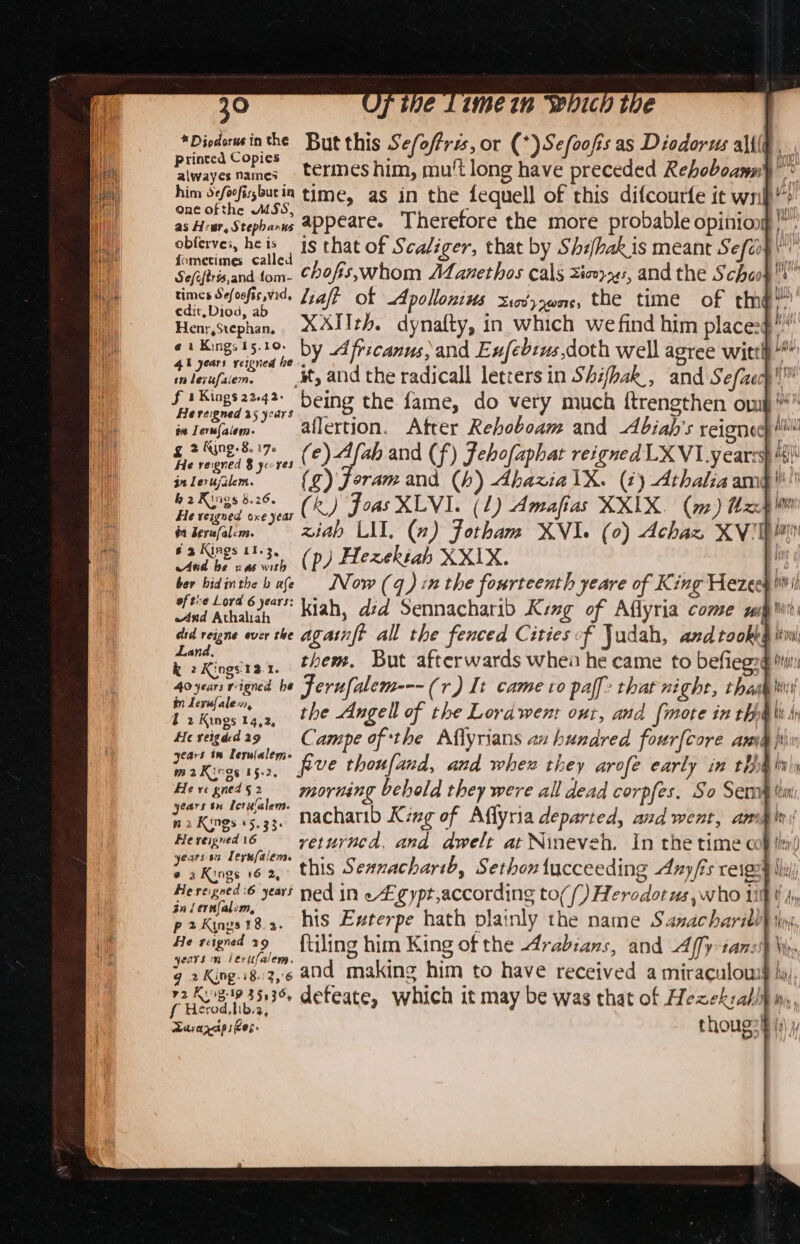 30 Of the Time in Which the
But this Seſoſtris, or (*) Seſooſis as Diodorus
termes him, muſt long have preceded Rehoboam
time, as in the ſequell of this diſcourſe it
appeare. Therefore the more probable opinion
is that of Scaliger, that by Shiſhak is meant
choſis, whom Manethos cals Σέσογχις, and the
liaſt of Apollonius Σεσόγχωσις, the time of
XXIIth. dynaſty, in which we find him
by Africanus, and Euſebius, doth well agree with
it, and the radicall letters in Shiſhak, and
being the ſame, do very much ſtrengthen our
aſſertion. After Rehoboam and Abiah's reigned
(e) Aſah and (f) Jehoſaphat reigned LXVI. years
(g) Joram and (h) Ahazia IX. (i) Athalia and
(k) Joas XLVI. (l) Amaſias XXIX. (m)
ziah LII. (n) Jotham XVI. (o) Achaz
(p) Hezekiah XXIX.
Now (q) in the fourteenth yeare of King Heze-
kiah, did Sennacharib King of Aſſyria come
againſt all the fenced Cities of Judah, and took
them. But afterwards when he came to beſiege
Jeruſalem---(r) It came to paſſ- that night, that
the Angell of the Lord went out, and ſmote in
Campe of the Aſſyrians an hundred fourſcore and
five thouſand, and when they aroſe early in
morning behold they were all dead corpſes. So
nacharib King of Aſſyria departed, and went, and
returned, and dwelt at Nineveh. In the time of
this Sennacharib, Sethon ſucceeding Anyſis
ned in Ægypt, according to (ſ) Herodotus, who
his Euterpe hath plainly the name
ſtiling him King of the Arabians, and
and making him to have received a miraculous
defeate, which it may be was that of Hezekiah
* Diodorus in the
printed Copies
alwayes names
him Seſooſis, but in
one of the MSS,
as Henr, Stephanus
obſerves, he is
ſometimes called
Seſoſtris, and ſom-
times Seſooſis, vid.
edit, Diod, ab
Henr, Stephan.
e 1 Kings 15.10.
41 years reigned he
in Ieruſalem.
f 1 Kings 22.42.
He reigned 25 years
in Ieruſalem.
g 2 King. 8.17.
He reigned 8 yeares
in Ieruſalem.
h 2 Kings 8.26.
He reigned one year
in Ieruſalem.
i 2 Kings 11.3.
And he was with
her hid in the houſe
of the Lord 6 years:
And Athaliah
did reigne over the
Land.
k 2 Kings 12 1.
40 years reigned he
in Ieruſalem,
l 2 Kings 14,2,
He reigned 29
years in Ieruſalem.
m 2 Kings 15.2,
He reigned 52
years in Ieruſalem.
n 2 Kings 15.33.
He reigned 16
years in Ieruſalem.
o 2 Kings 16 2,
He reigned 16 years
in Ieruſalem,
p 2 Kings 18.2.
He reigned 29
years in Ieruſalem.
q 2 King. 18.
r 2 King. 19 35,36,
ſ Herod, lib. 2,